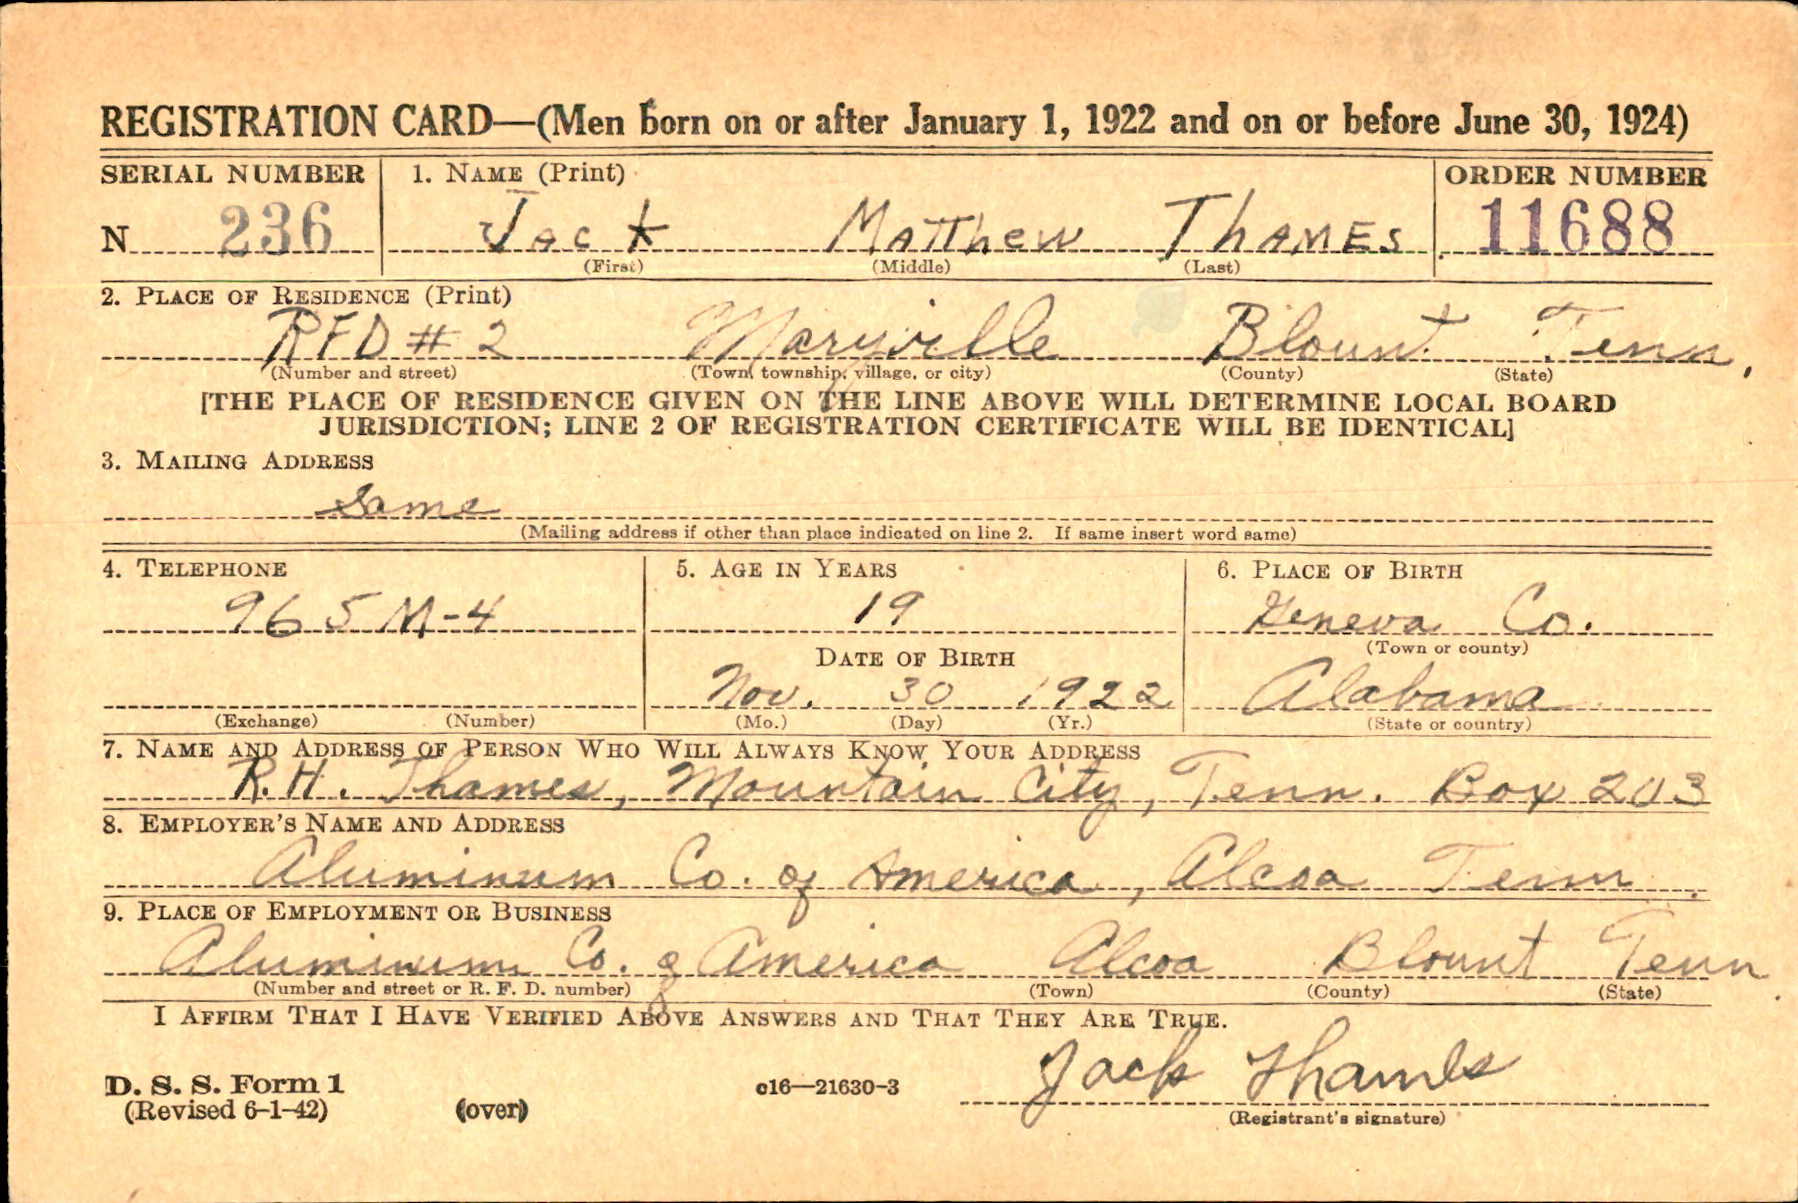 REGISTRATION CARD—(Men born on or after January 1, 1922 and on or before June 30, 1924)
SERIAL NUMBER 1. NAME (Print) ORDER NUMBER
N 236 Jack Matthew Thames 11688
(First) (Middle) (Last)
2. PLACE OF RESIDENCE (Print)
RFD # 2 Maryville Blount Tenn.
(Number and street) (Town, township, village, or city) (County) (State)
[THE PLACE OF RESIDENCE GIVEN ON THE LINE ABOVE WILL DETERMINE LOCAL BOARD
JURISDICTION; LINE 2 OF REGISTRATION CERTIFICATE WILL BE IDENTICAL]
3. MAILING ADDRESS
Same
(Mailing address if other than place indicated on line 2. If same insert word same)
4. TELEPHONE 5. AGE IN YEARS 6. PLACE OF BIRTH
965 M-4 19 Geneva Co.
(Town or county)
DATE OF BIRTH
Nov. 30 1922 Alabama
(Exchange) (Number) (Mo.) (Day) (Yr.) (State or country)
7. NAME AND ADDRESS OF PERSON WHO WILL ALWAYS KNOW YOUR ADDRESS
R.H. Thames, Mountain City, Tenn. Box 203
8. EMPLOYER'S NAME AND ADDRESS
Aluminum Co. of America, Alcoa Tenn.
9. PLACE OF EMPLOYMENT OR BUSINESS
Aluminum Co. of America Alcoa Blount Tenn.
(Number and street or R. F. D. number) (Town) (County) (State)
I AFFIRM THAT I HAVE VERIFIED ABOVE ANSWERS AND THAT THEY ARE TRUE.
Jack Thames
D. S. S. Form 1
(Revised 6-1-42) (over) c16—21630-3 (Registrant's signature)